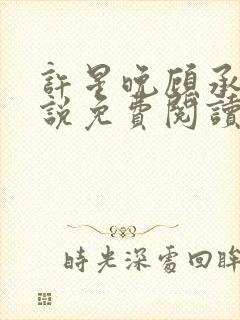 許星晚顧承
說免費閱讀
時光深處回眸